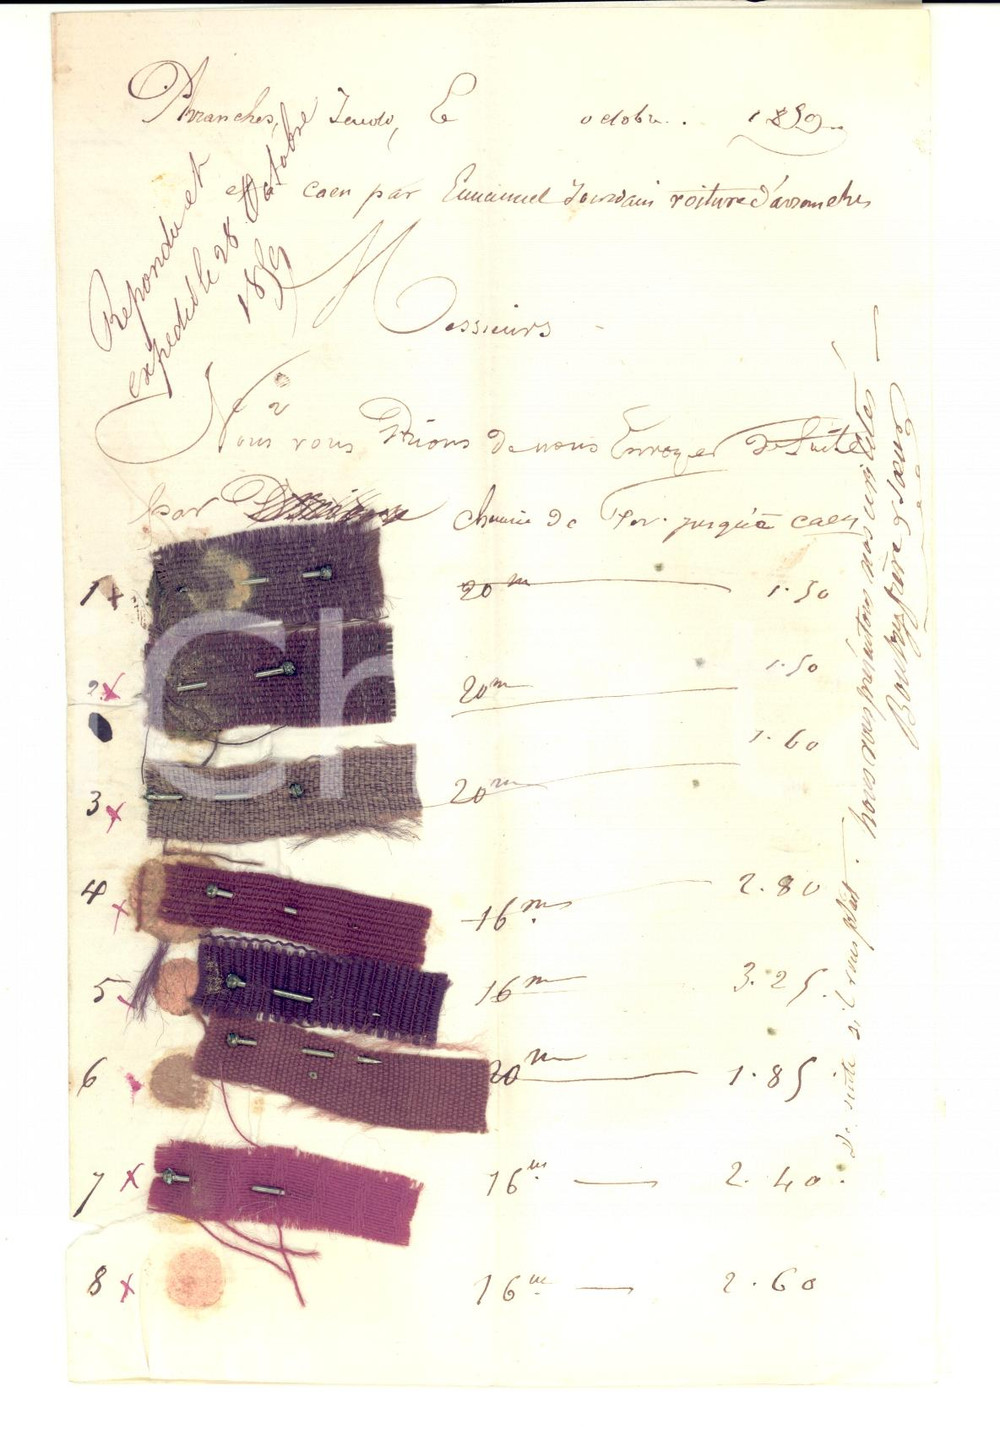 Avranches, Jeudi, Le octobre. 1859.
et a caen par Emmanuel Jourdain voiture d'avranches
Repondu et
expedié le 28 Octobre
1859
Messieurs
Nous vous Prions de nous Envoyer de Suite
par chemin de Fer. jusqu'a caen
1 x 20 m 1.50
2 x 20 m 1.50
3 x 20 m 1.60
4 x 16 m 2.80
5 x 16 m 3.25.
6 x 20 m 1.85.
7 x 16 m 2.40.
8 x 16 m 2.60
De suite s'il vous plait. nous vous présentons nos civilités
frère & soeur
Ch